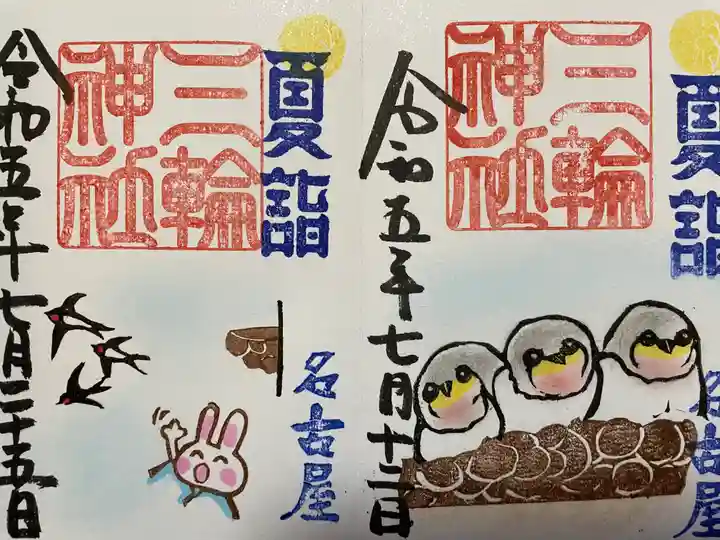 夏詣
三輪
神社
令和五年七月二十五日
名古屋
夏詣
三輪
神社
令和五年七月十二日
名古屋